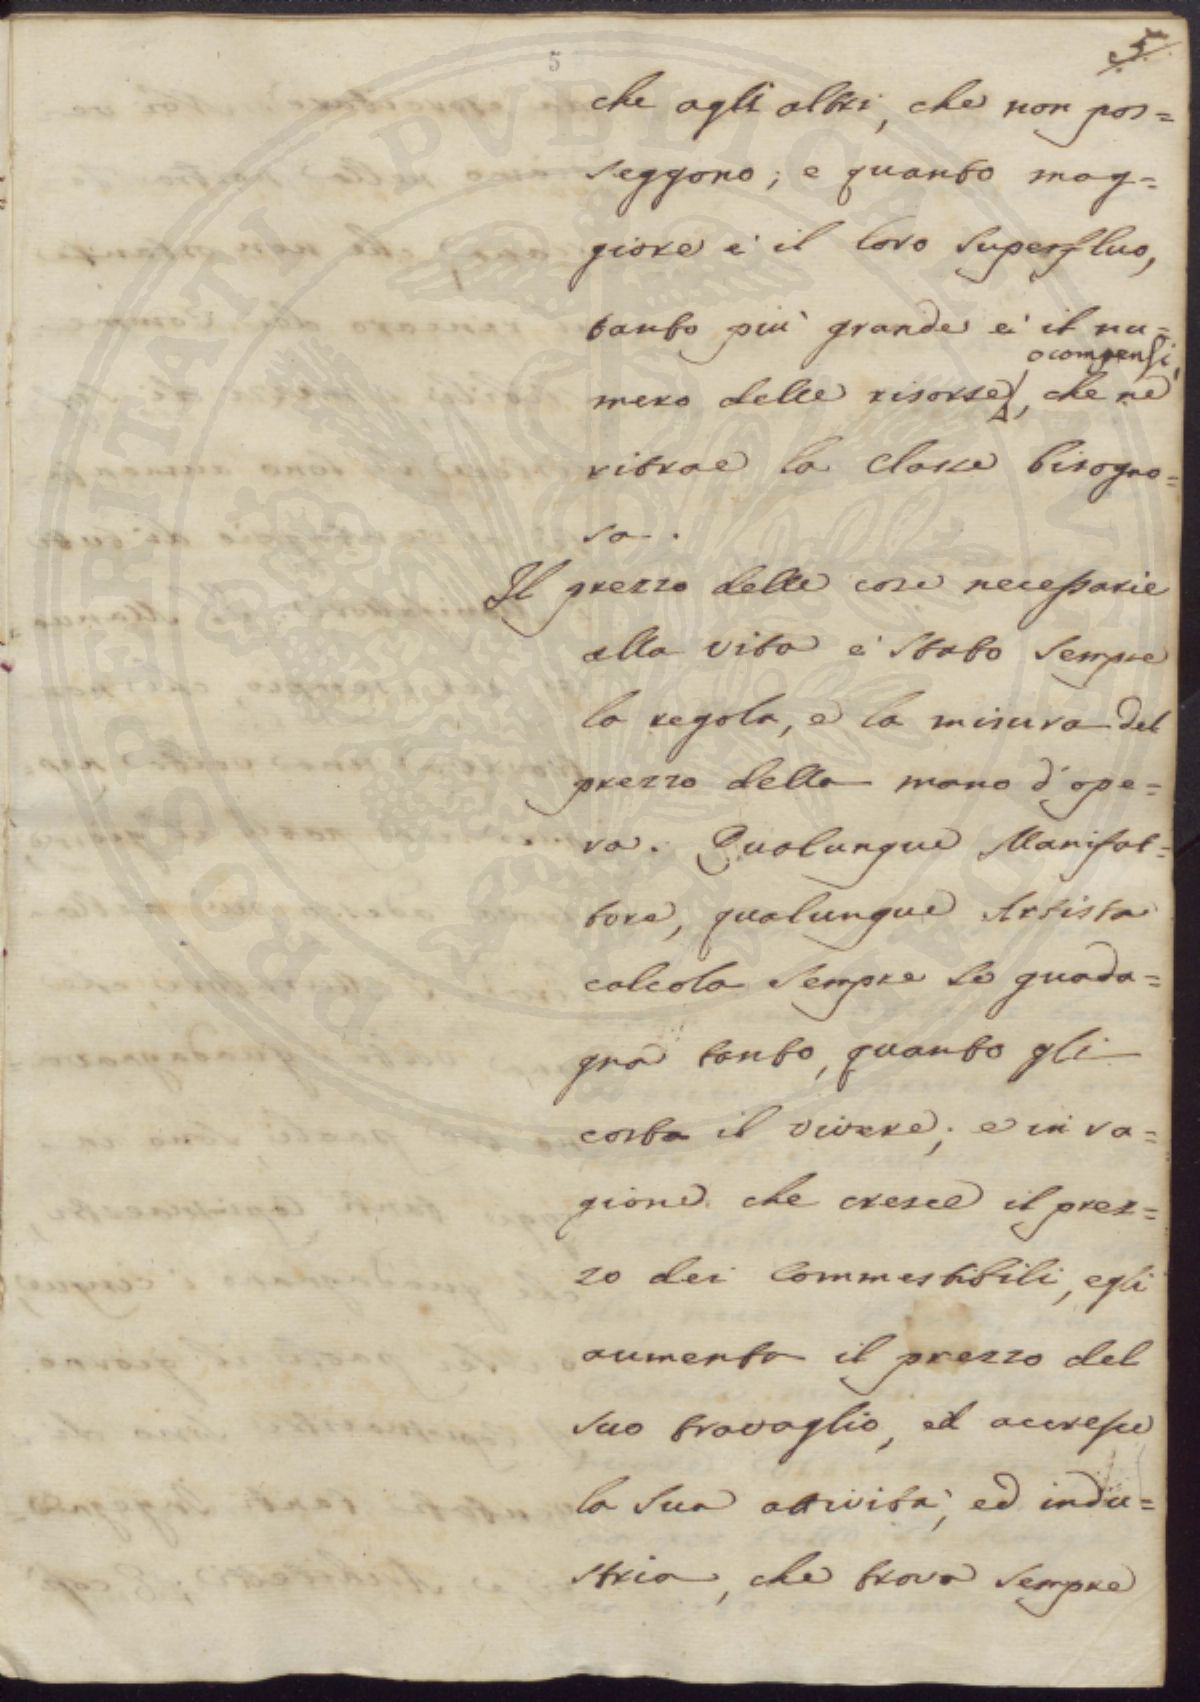 5
5
che agli altri, che non pos=
seggono; e quanto mag=
giore e' il loro superfluo,
tanto piu' grande e' il nu=
o compensi,
mero delle risorse, che ne
ritrae la Classe bisogno=
sa.
Il prezzo delle cose necessarie
alla vita e' stato sempre
la regola, e la misura del
prezzo della mano d'ope=
ra. Qualunque Manifat=
tore, qualunque Artista
calcola sempre se guada=
gna tanto, quanto gli
costa il vivere; e in ra=
gione che cresce il prez=
zo dei Commestibili, egli
aumenta il prezzo del
suo travaglio, ed accresce
la sua attivita', ed indu=
stria, che trova sempre
PUBLICAE
PROSPERITATI